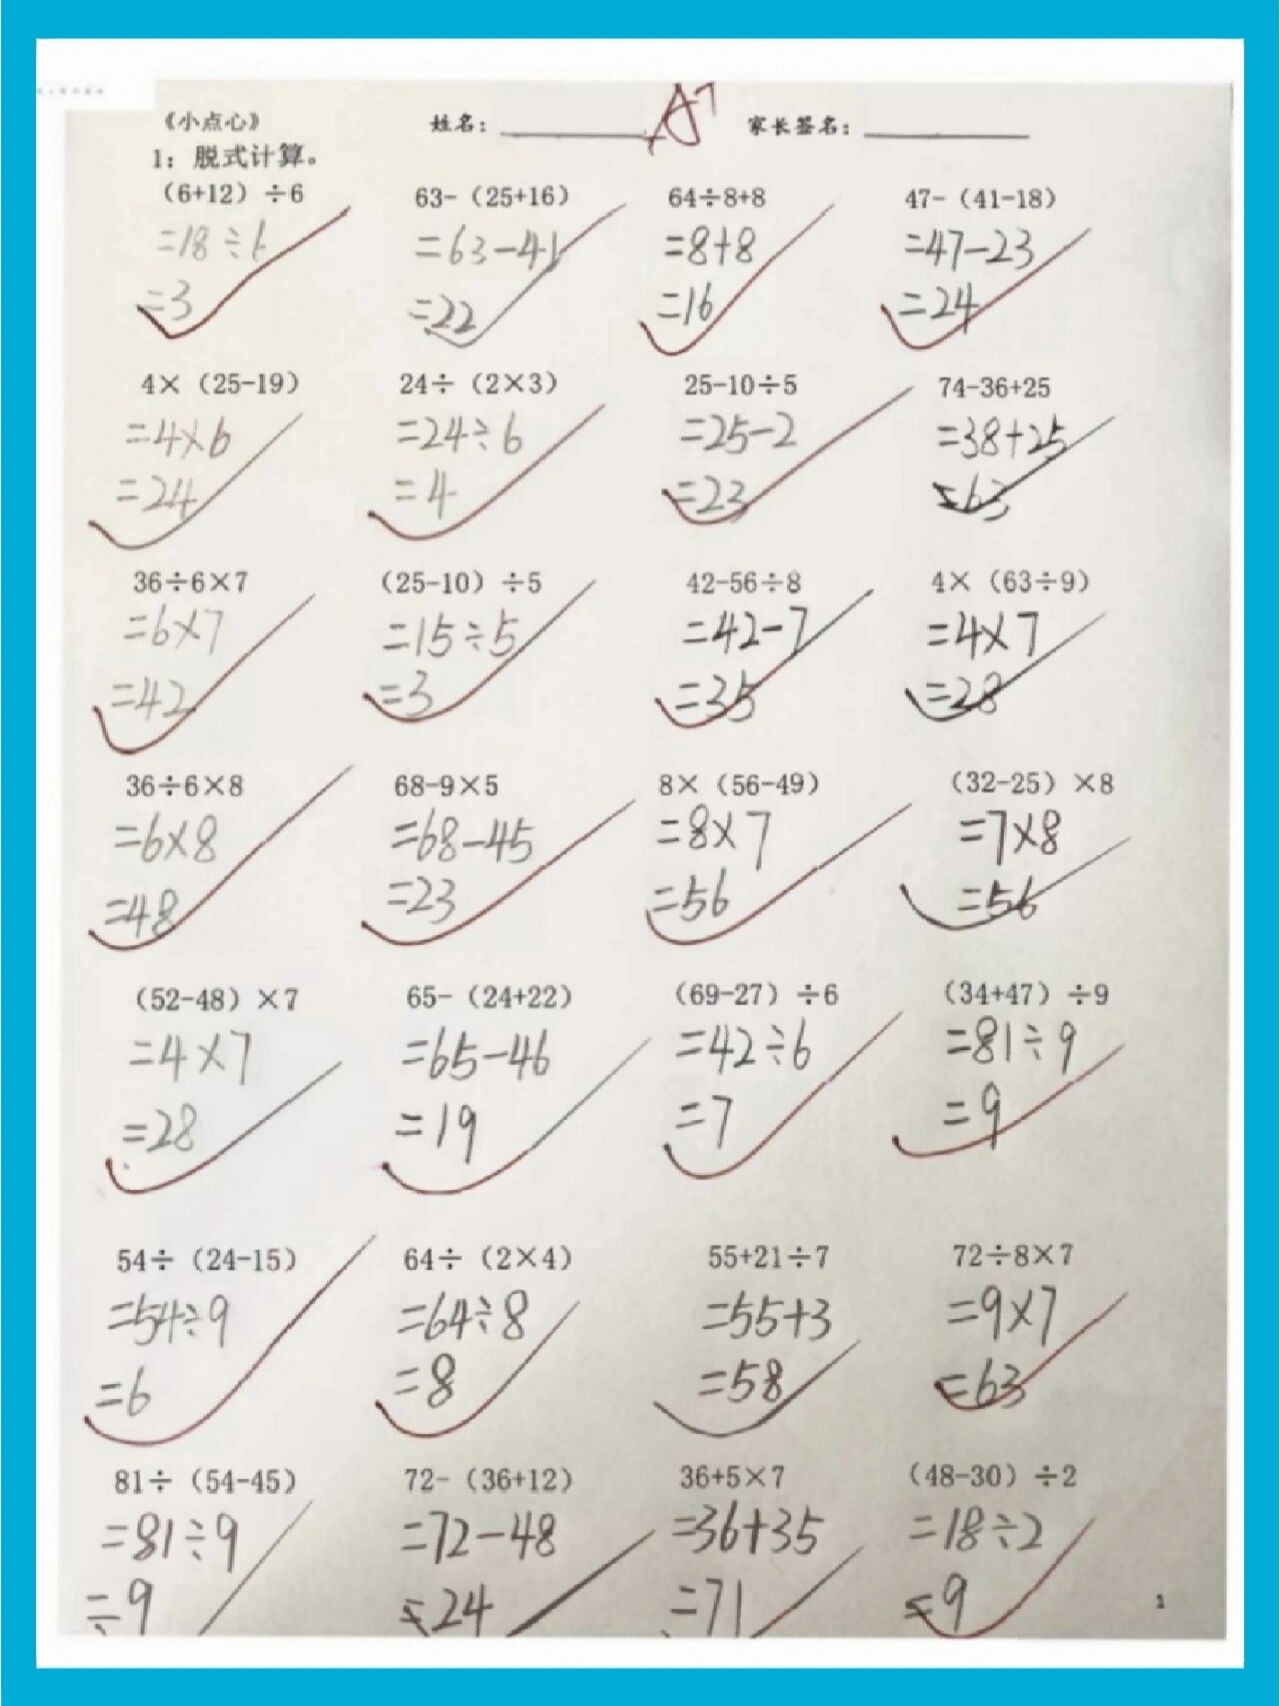 《小点心》 姓名： A+ 家长签名：
1：脱式计算。
（6+12）÷6 63-（25+16） 64÷8+8 47-（41-18）
=18÷6 =63-41 =8+8 =47-23
=3 =22 =16 =24
4×（25-19） 24÷（2×3） 25-10÷5 74-36+25
=4×6 =24÷6 =25-2 =38+25
=24 =4 =23 =63
36÷6×7 （25-10）÷5 42-56÷8 4×（63÷9）
=6×7 =15÷5 =42-7 =4×7
=42 =3 =35 =28
36÷6×8 68-9×5 8×（56-49） （32-25）×8
=6×8 =68-45 =8×7 =7×8
=48 =23 =56 =56
（52-48）×7 65-（24+22） （69-27）÷6 （34+47）÷9
=4×7 =65-46 =42÷6 =81÷9
=28 =19 =7 =9
54÷（24-15） 64÷（2×4） 55+21÷7 72÷8×7
=54÷9 =64÷8 =55+3 =9×7
=6 =8 =58 =63
81÷（54-45） 72-（36+12） 36+5×7 （48-30）÷2
=81÷9 =72-48 =36+35 =18÷2
=9 =24 =71 =9
1